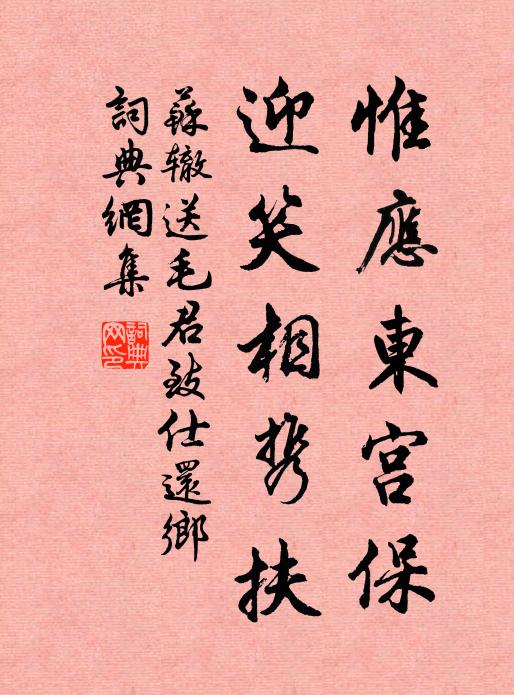 惟應東宮保
迎笑相携扶
蘇辙送毛君致仕還鄉
詞典網集
詞典網印